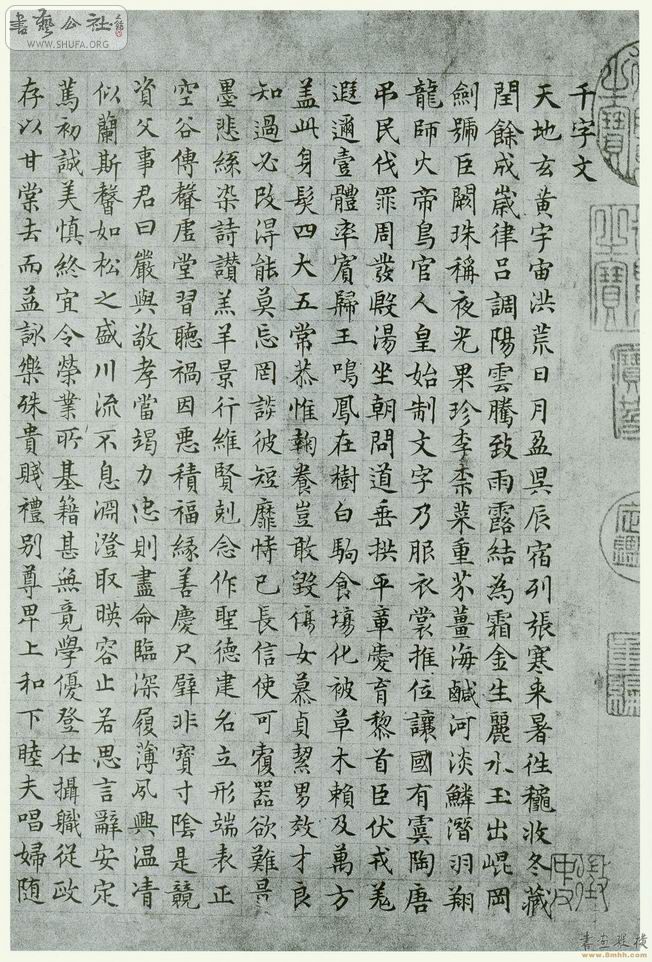 書藝公社
WWW.SHUFA.ORG
千字文
天地玄黄宇宙洪荒日月盈昃辰宿列張寒来暑往穐收冬藏
閏餘成歲律呂調陽雲騰致雨露結為霜金生麗水玉出崐岡
劍號巨闕珠稱夜光果珍李柰菜重芥薑海鹹河淡鱗潛羽翔
龍師火帝鳥官人皇始制文字乃服衣裳推位讓國有虞陶唐
弔民伐罪周發殷湯坐朝問道垂拱平章愛育黎首臣伏戎羌
遐邇壹體率賓歸王鳴鳳在樹白駒食場化被草木賴及萬方
盖此身髮四大五常恭惟鞠養豈敢毀傷女慕貞絜男效才良
知過必改得能莫忘罔談彼短靡恃己長信使可覆器欲難量
墨悲絲染詩讃羔羊景行維賢剋念作聖德建名立形端表正
空谷傳聲虚堂習聽禍因惡積福緣善慶尺璧非寶寸陰是競
資父事君曰嚴與敬孝當竭力忠則盡命臨深履薄夙興温凊
似蘭斯馨如松之盛川流不息淵澄取暎容止若思言辭安定
篤初誠美慎終宜令榮業所基籍甚無竟學優登仕攝職從政
存以甘棠去而益詠樂殊貴賤禮別尊卑上和下睦夫唱婦随
書画縱橫
www.8mhh.com